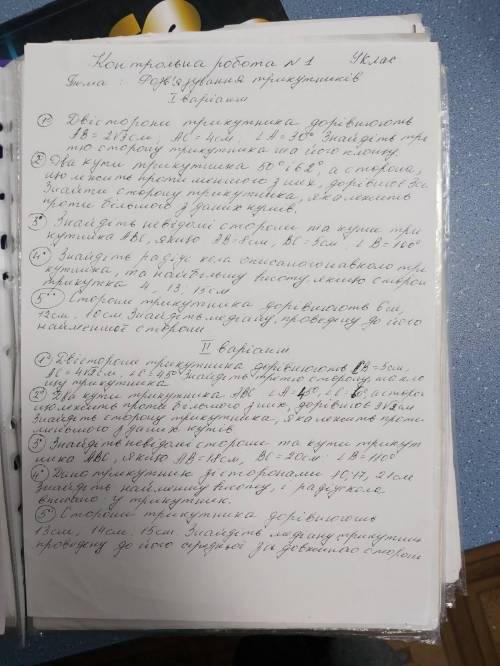 Контрольна робота №1 9 клас
Тема: Розв'язування трикутників
I варіант
1° Дві сторони трикутника дорівнюють
AB = 2√3 см; AC = 4 см; ∠A = 30° Знайдіть тре
тю сторону трикутника та його площу.
2° Два кути трикутника 50° і 62°, а сторона,
що лежить проти меншого з них, дорівнює
Знайти сторону трикутника, яка лежить
проти більшого з даних кутів.
3° Знайдіть невідомі сторони та кути три
кутника ABC, якщо AB = 8см, BC = 5см ∠B = 100°
4° Знайдіть радіус кола описаного навколо три
кутника, та найбільшу висоту якщо сторони
трикутка 4, 13, 15см
5° Сторони трикутника дорівнюють 6см,
12см. 10см Знайдіть медіану, проведену до його
найменшої сторони
II варіант
1° Дві сторони трикутника дорівнюють = 3см.
AC = 4√2см, ∠C = 45° Знайдіть третю сторону та пло
щу трикутника
2° Два кути трикутника ABC ∠A = 45°, ∠C = а сторон
що лежить проти більшого з них, дорівнює 3√2см
Знайдіть сторону трикутника, яка лежить проти
меншого з даних кутів
3° Знайдіть невідомі сторони та кути трикут
ника ABC, якщо AB = 18см, BC = 20см: ∠B = 110°
4° Дано трикутник зі сторонами 10, 17, 21см
Знайдіть найменшу висоту, і радіус кола
вписаного у трикутник.
5° Сторони трикутника дорівнюють
13см, 14см. 15см. Знайдіть медіану трикутник
проведену до його середньої за довжиною сторони